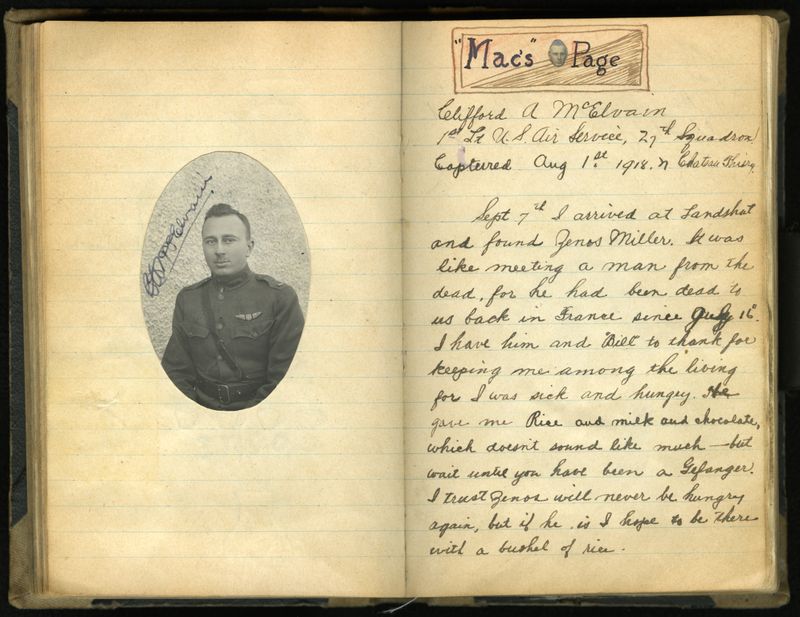 C A McElvain
"Mac's" Page
Clifford A McElvain
1st Lt U.S. Air Service, 27th Squadron
Captured Aug 1st 1918. n Chateau Thierry
Sept 7th I arrived at Landshut
and found Zenos Miller. It was
like meeting a man from the
dead, for he had been dead to
us back in France since July 16.
I have him and "Bill" to thank for
keeping me among the living
for I was sick and hungry. He
gave me Rice and milk and chocolate,
which doesn't sound like much — but
wait until you have been a Gefanger.
I trust Zenos will never be hungry
again, but if he is I hope to be there
with a bushel of rice.